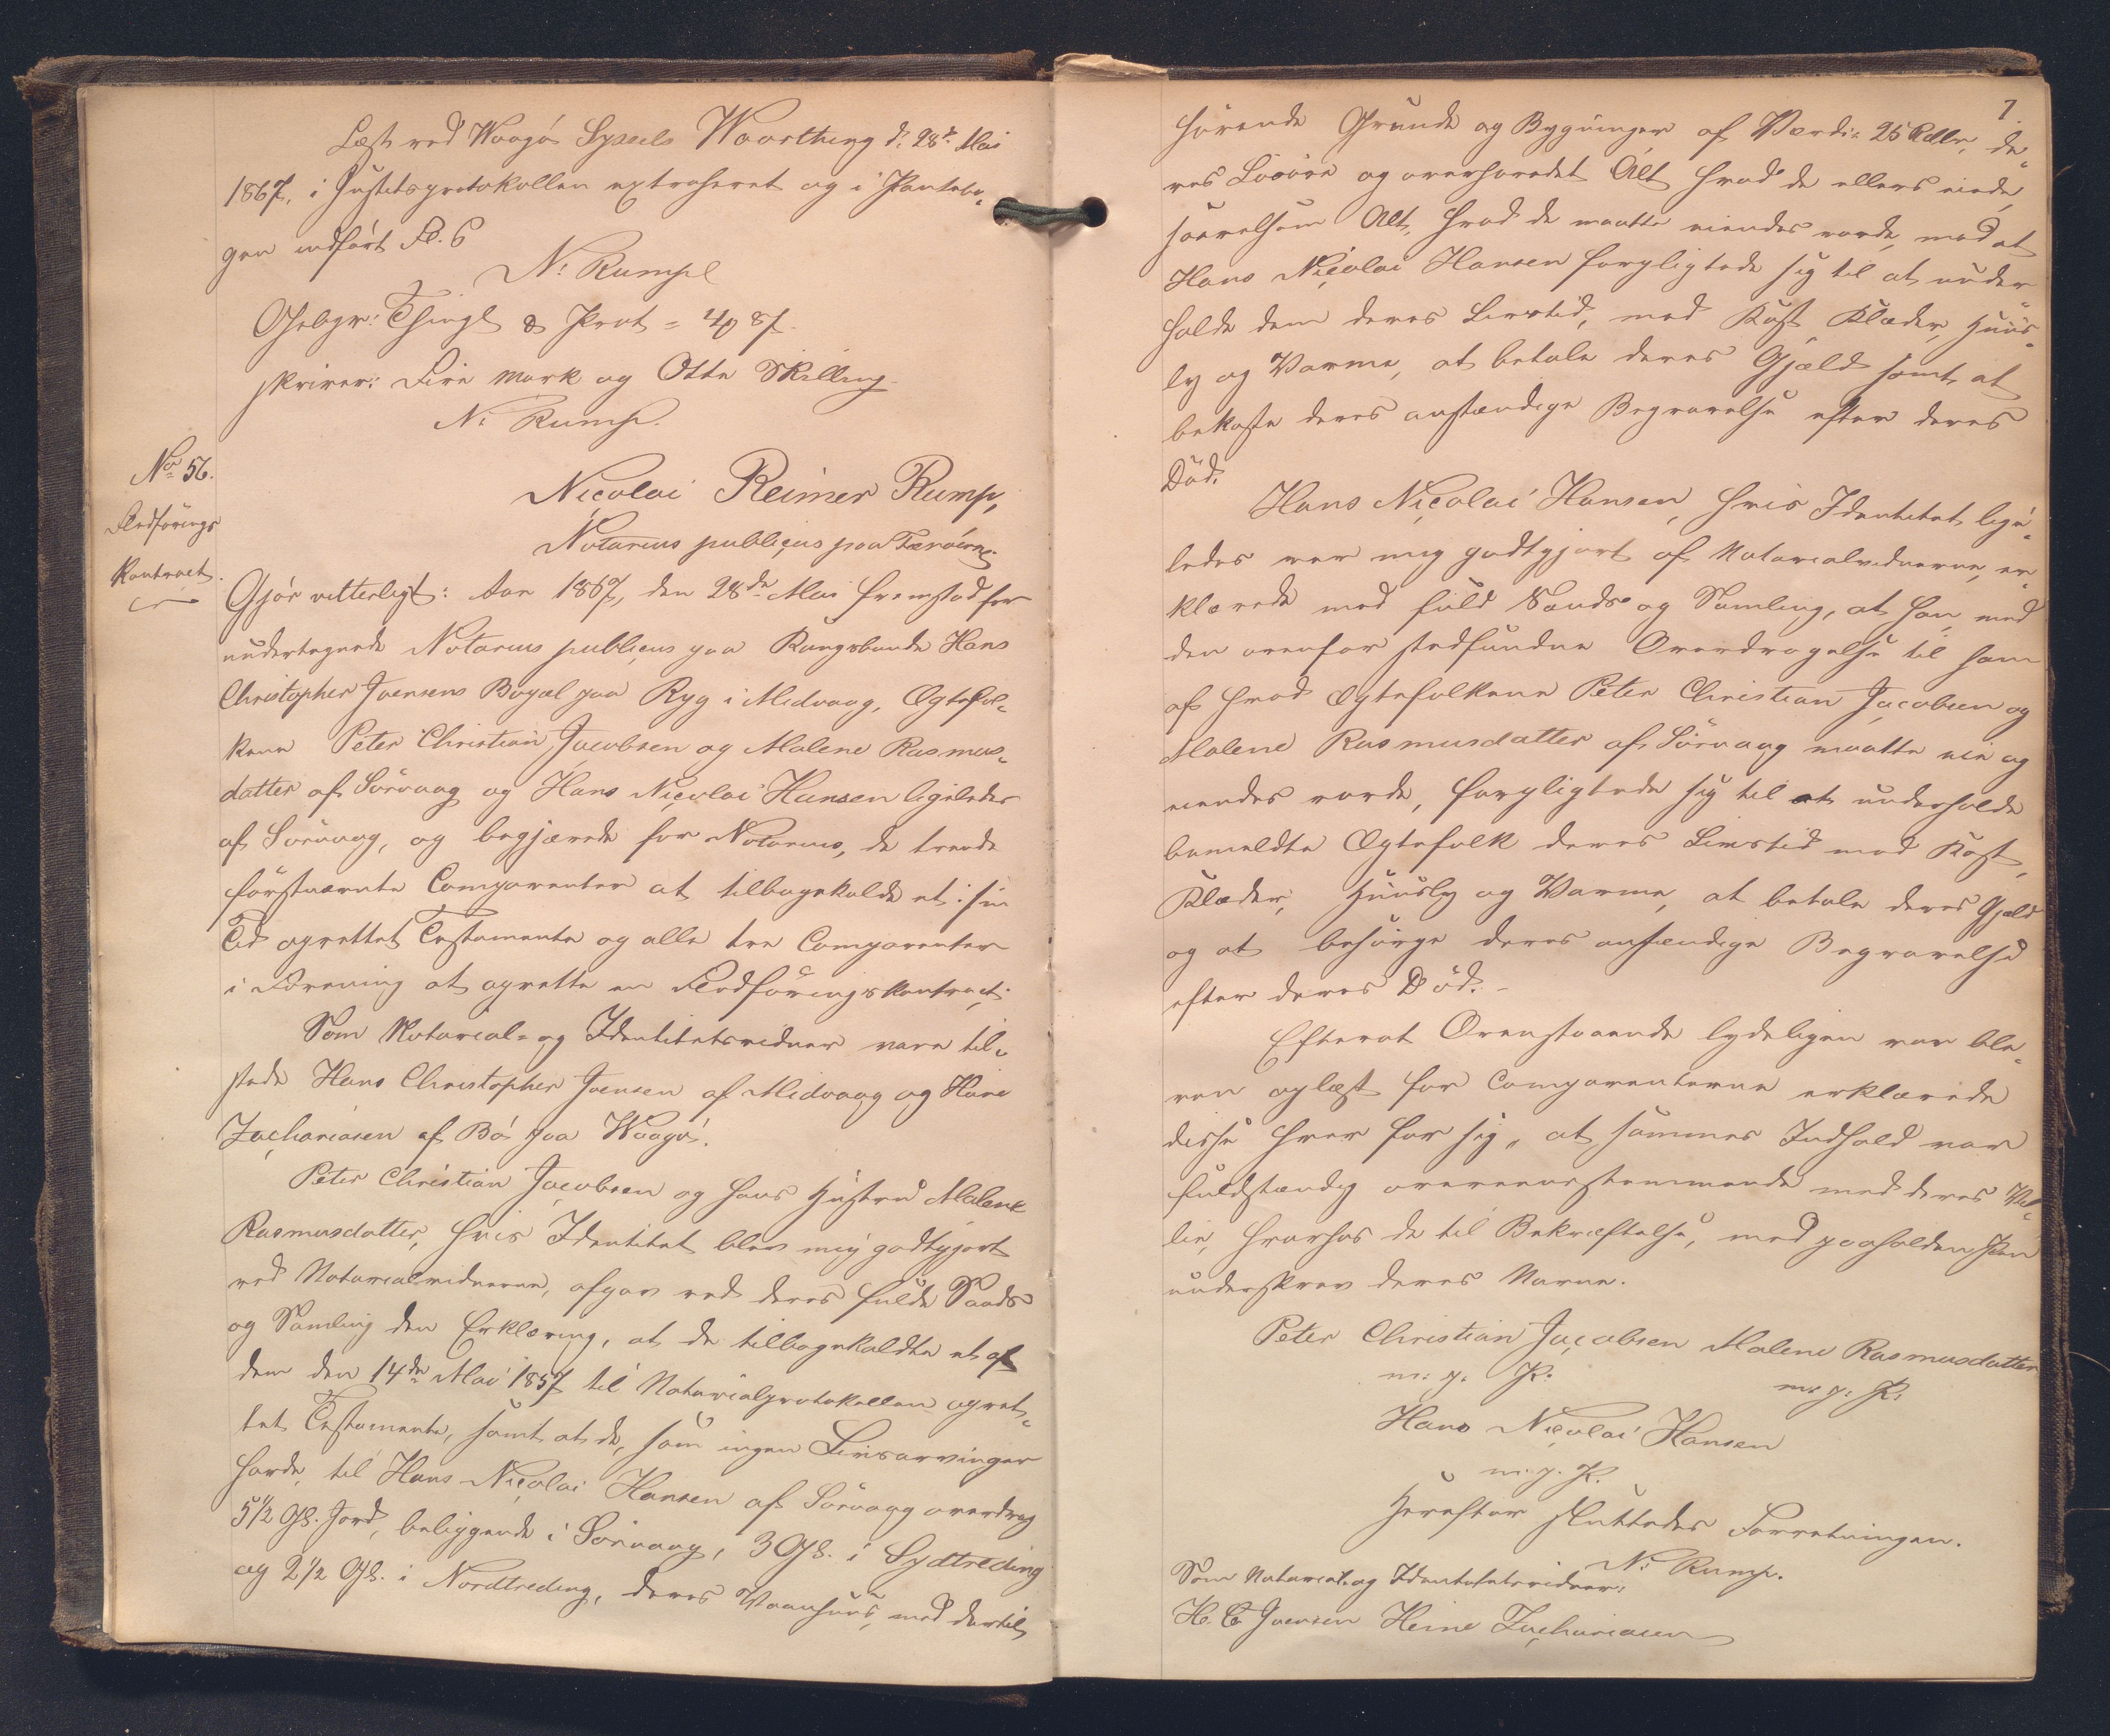 Læst ved Waagø Syssels Waarthing d: 28de Mai
1867, i Justitsprotokollen extraheret og i Pantebo-
gen indført Fol. 6
N: Rump
Gebyr: Thingl & Prot = 4 ₰ 8 ß
skriver: Fire Mark og Otte Skilling
N: Rump.
No 56.
Fledførings
Kontract.
Nicolai Reimer Rump,
Notarius publicus paa Færøerne
Gjør vitterligt: Aar 1867, den 28de Mai fremstod for
undertegnede Notarius publicus paa Kongsbonde Hans
Christopher Joensens Bopæl paa Ryg i Midvaag, Ægtefol-
kene Peter Christian Jacobsen og Malene Rasmus-
datter af Sörvaag og Hans Nicolai Hansen ligeledes
af Sörvaag, og begjærede for Notarius, de tvende
förstnævnte Comparenter at tilbagekalde et i sin
Tid oprettet Testamente og alle tre Comparenter
i Forening at oprette en Fledföringskontract.
Som Notarial- og Identitetsvidner vare til-
stede Hans Christopher Joensen af Midvaag og Heine
Zachariasen af Bö paa Waagö.
Peter Christian Jacobsen og hans Hustru Malene
Rasmusdatter, hvis Identitet blev mig godtgjort
ved Notarialvidnerne, afgav ved deres fulde Sands
og Samling den Erklæring, at de tilbagekaldte et af
dem den 14de Mai 1857 til Notarialprotokollen opret-
tet Testamente, samt at de, som ingen Livsarvinger
havde, til Hans Nicolai Hansen af Sörvaag overdrog
5 1/2 Gl. Jord, beliggende i Sörvaag, 3 Gl. i Sydtreding
og 2 1/2 Gl. i Nordtreding, deres Vaanhuus, med dertil
7.
hörende Grunde og Bygninger af Værdi: 25 Rdlr, de-
res Lösöre og overhovedet Alt hvad de ellers eiede,
saavelsom Alt, hvad de maatte eiendes vorde, mod at
Hans Nicolai Hansen forpligtede sig til at under-
holde dem deres Livstid, med Kost, Klæder, Huus-
ly og Varme, at betale deres Gjæld samt at
bekoste deres anstændige Begravelse efter deres
Död.
Hans Nicolai Hansen, hvis Identitet lige-
ledes var mig godtgjort af Notarialvidnerne, er-
klærede med fuld Sands og Samling, at han, med
den ovenfor stedfundne Overdragelse til ham
af hvad Ægtefolkene Peter Christian Jacobsen og
Malene Rasmusdatter af Sörvaag maatte eie og
eiendes vorde, forpligtede sig til at underholde
bemeldte Ægtefolk deres Livstid med Kost,
Klæder, Huusly og Varme, at betale deres Gjæld
og at besörge deres anstændige Begravelse
efter deres Död.
Efterat Ovenstaaende lydeligen var ble-
ven oplæst for Comparenterne erklærede
disse hver for sig, at sammes Indhold var
fuldstændig overeensstemmende med deres Vil-
lie, hvorhos de til Bekræftelse, med paaholden Pen
underskrev deres Navne.
Peter Christian Jacobsen Malene Rasmusdatter
m: p: P: m: p: P:
Hans Nicolai Hansen
m. p. P.
Herefter sluttedes Forretningen.
N: Rump.
Som Notarial- og Identitetsvidner:
H. C. Joensen Heine Zachariasen